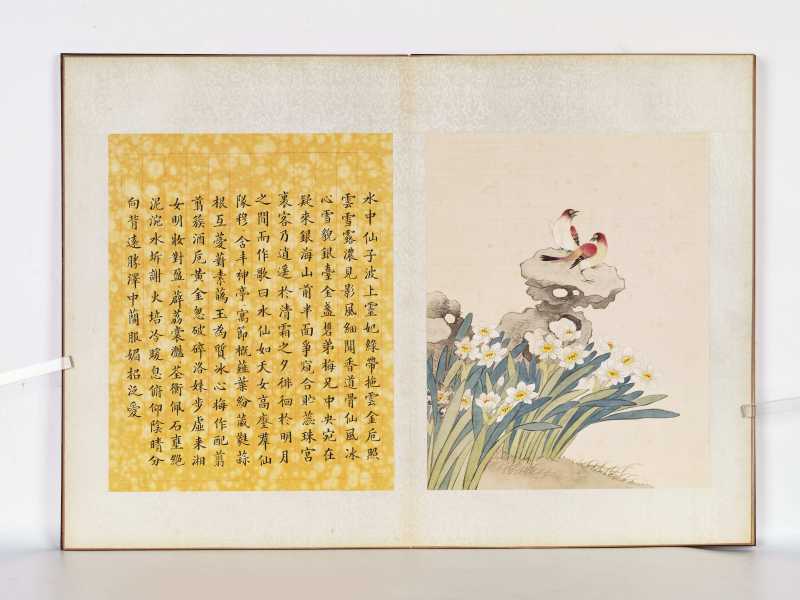 水中仙子波上靈妃綠帶拖雲金卮照
雲雪露濃見影風細聞香道骨仙風冰
心雪貌銀臺金盞礬弟梅兄中央宛在
疑來銀海山前半面爭窺合貯蕊珠宮
裏客乃逍遙於清霜之夕徘徊於明月
之間而作歌曰水仙如天女高座群仙
隊穆、含丰神亭、寓節概薤葉紛葳蕤蒜
根互蔓菁素蕅玉為質冰心梅作配翦
翦簇酒卮黃金忽破碎洛妹步虛来湘
女明妝對盈、薜荔裳灑、荃蘅佩石重絕
泥涴水謝火培冷暖息俯仰陰晴分
向背遠勝澤中蘭服媚招泛愛